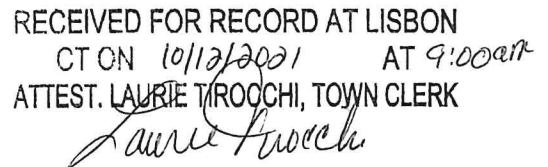 RECEIVED FOR RECORD AT LISBON
CT ON 10/12/2021 AT 9:00am
ATTEST. LAURIE TIROCCHI, TOWN CLERK
Laurie Tirocchi